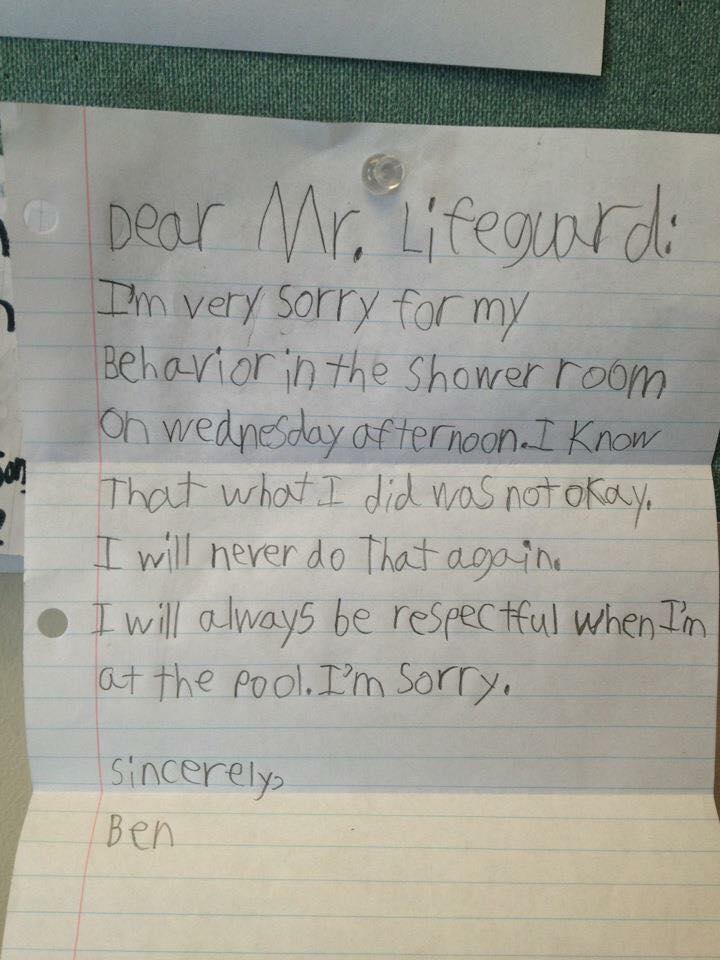 Dear Mr. Lifeguard:
I'm very sorry for my
Behavior in the shower room
on wednesday afternoon. I Know
That what I did was not okay.
I will never do That again.
I will always be respectful when I'm
at the pool. I'm sorry.
sincerely,
Ben